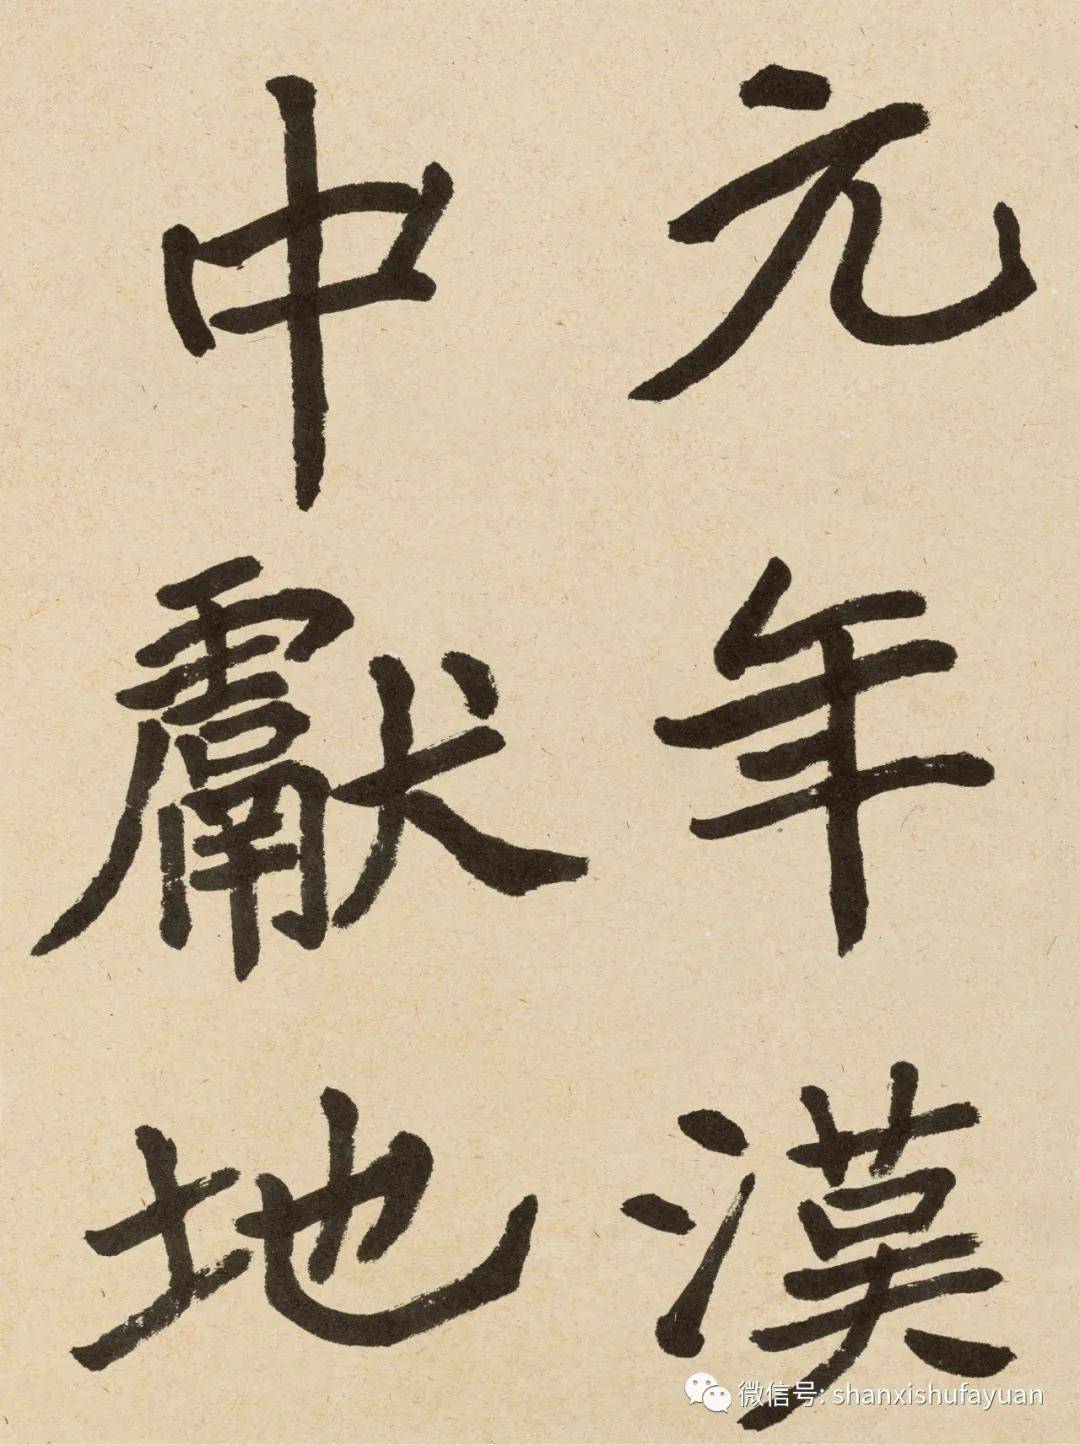 元年漢
中獻地
微信号: shanxishufayuan